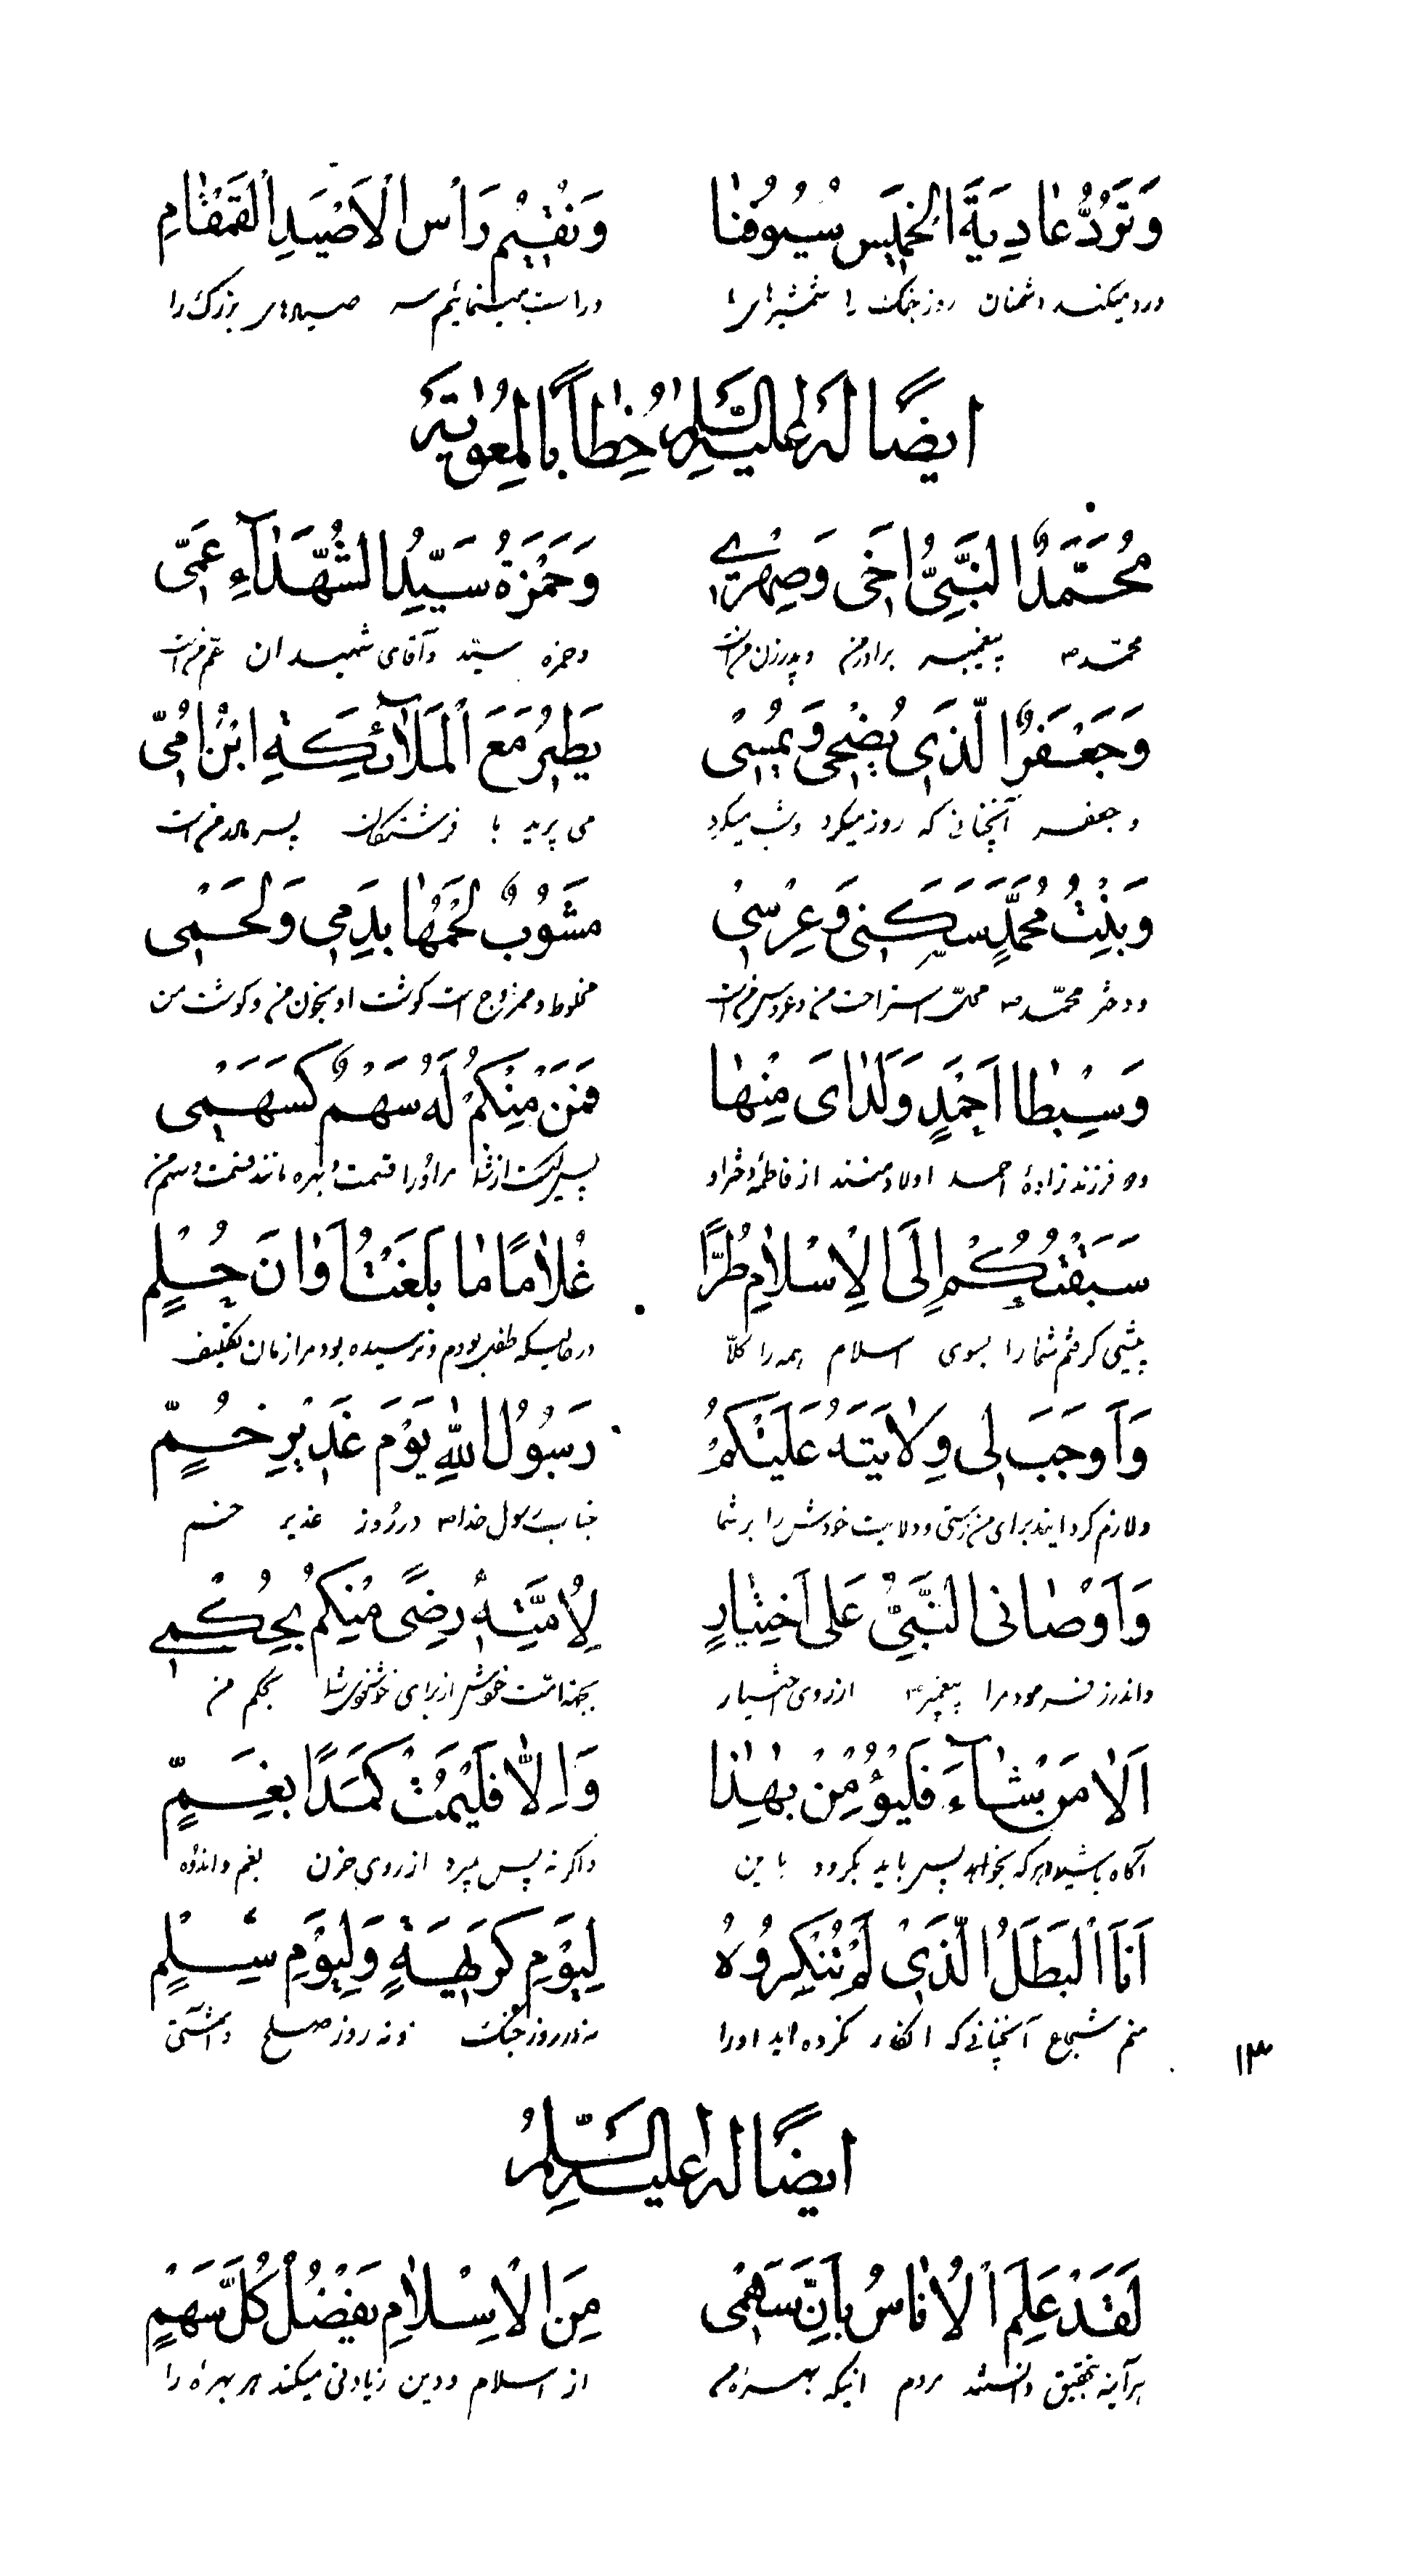 وَتَرُدُّ عٰادِيَةَ الْخَمٖيسِ سُيُوفُنٰا وَنُقٖيمُ رَأْسَ الْاَصْيَدِ الْقَمْقٰامِ
ورد میکند دشمنان روز جنگ را شمشیرهای ما وراست مینمائیم سر صیدهای بزرگ را
ایضًا لَهُ عَلَیْهِ السَّلٰمُ خِطٰابًا لِمُعٰوِیَةَ
مُحَمَّدٌ النَّبِيُّ اَخٖى وَصِهْرٖى وَحَمْزَةُ سَيِّدُ الشُّهَدٰآءِ عَمّٖى
محمّد ص پیغمبر برادر من وپدرزن من است وحمزه سیّد وآقای شهیدان عمّ من است
وَجَعْفَرٌ الَّذٖى يُضْحٖى وَيُمْسٖى يَطٖيرُ مَعَ الْمَلٰآئِكَةِ ابْنُ اُمّٖى
وجعفر آنچنانی که روز میکرد وشب میکرد می پرید با فرشتگان پسر مادر من است
وَبِنْتُ مُحَمَّدٍ سَكَنٖى وَعِرْسٖى مَشُوبٌ لَحْمُهٰا بِدَمٖى وَلَحْمٖى
ودختر محمّد ص محلّ استراحت من وعروس من است مخلوط وممزوج است گوشت او بخون من وگوشت من
وَسِبْطٰا اَحْمَدٍ وَلَدٰاىَ مِنْهٰا فَمَنْ مِنْكُمْ لَهُ سَهْمٌ كَسَهْمٖى
ودو فرزندزادهٔ احمد اولاد منند از فاطمه دختر او پس کیست از شما مر اورا قسمت وبهره مانند قسمت وسهم من
سَبَقْتُكُمُ اِلَى الْاِسْلٰامِ طُرًّا غُلٰامًا مٰا بَلَغْتُ اَوٰانَ حُلْمٍ
پیشی گرفتم شما را بسوی اسلام همه را کلّا در حالیکه طفل بودم ونرسیده بودم از مان تکلیف
وَاَوْجَبَ لٖى وِلٰايَتَهُ عَلَيْكُمْ رَسُولُ اللّٰهِ يَوْمَ غَدٖيرِ خُمٍّ
ولازم گردانید برای من دوستی وولایت خودش را بر شما جناب رسول خدا ص در روز غدیر خم
وَاَوْصٰانِى النَّبِيُّ عَلَى اخْتِيٰارٍ لِاُمَّتِهٖ رِضًى مِنْكُمْ بِحُكْمٖى
واندرز فرمود مرا پیغمبر ص از روی اختیار بجهة امّت خودش از برای خوشنودی شما بحکم من
اَلٰا مَنْ شٰآءَ فَلْيُؤْمِنْ بِهٰذٰا وَاِلّٰا فَلْيَمُتْ كَمَدًا بِغَمٍّ
آگاه باشید هر که بخواهد پس باید بگرود باین واگر نه پس بمیرد از روی حزن بغم واندوه
اَنَا الْبَطَلُ الَّذٖى لَمْ تُنْكِرُوهُ لِيَوْمِ كَرٖيهَةٍ وَلِيَوْمِ سِلْمٍ
منم شجاع آنچنانی که انکار نکرده اید اورا نه در روز جنگ ونه روز صلح وآشتی
١٣
ایضًا لَهُ عَلَیْهِ السَّلٰمُ
لَقَدْ عَلِمَ الْاُنٰاسُ بِاَنَّ سَهْمٖى مِنَ الْاِسْلٰامِ يَفْضُلُ كُلَّ سَهْمٍ
هرآینه بتحقیق دانستند مردم اینکه بهره من از اسلام ودین زیادتی میکند هر بهره را